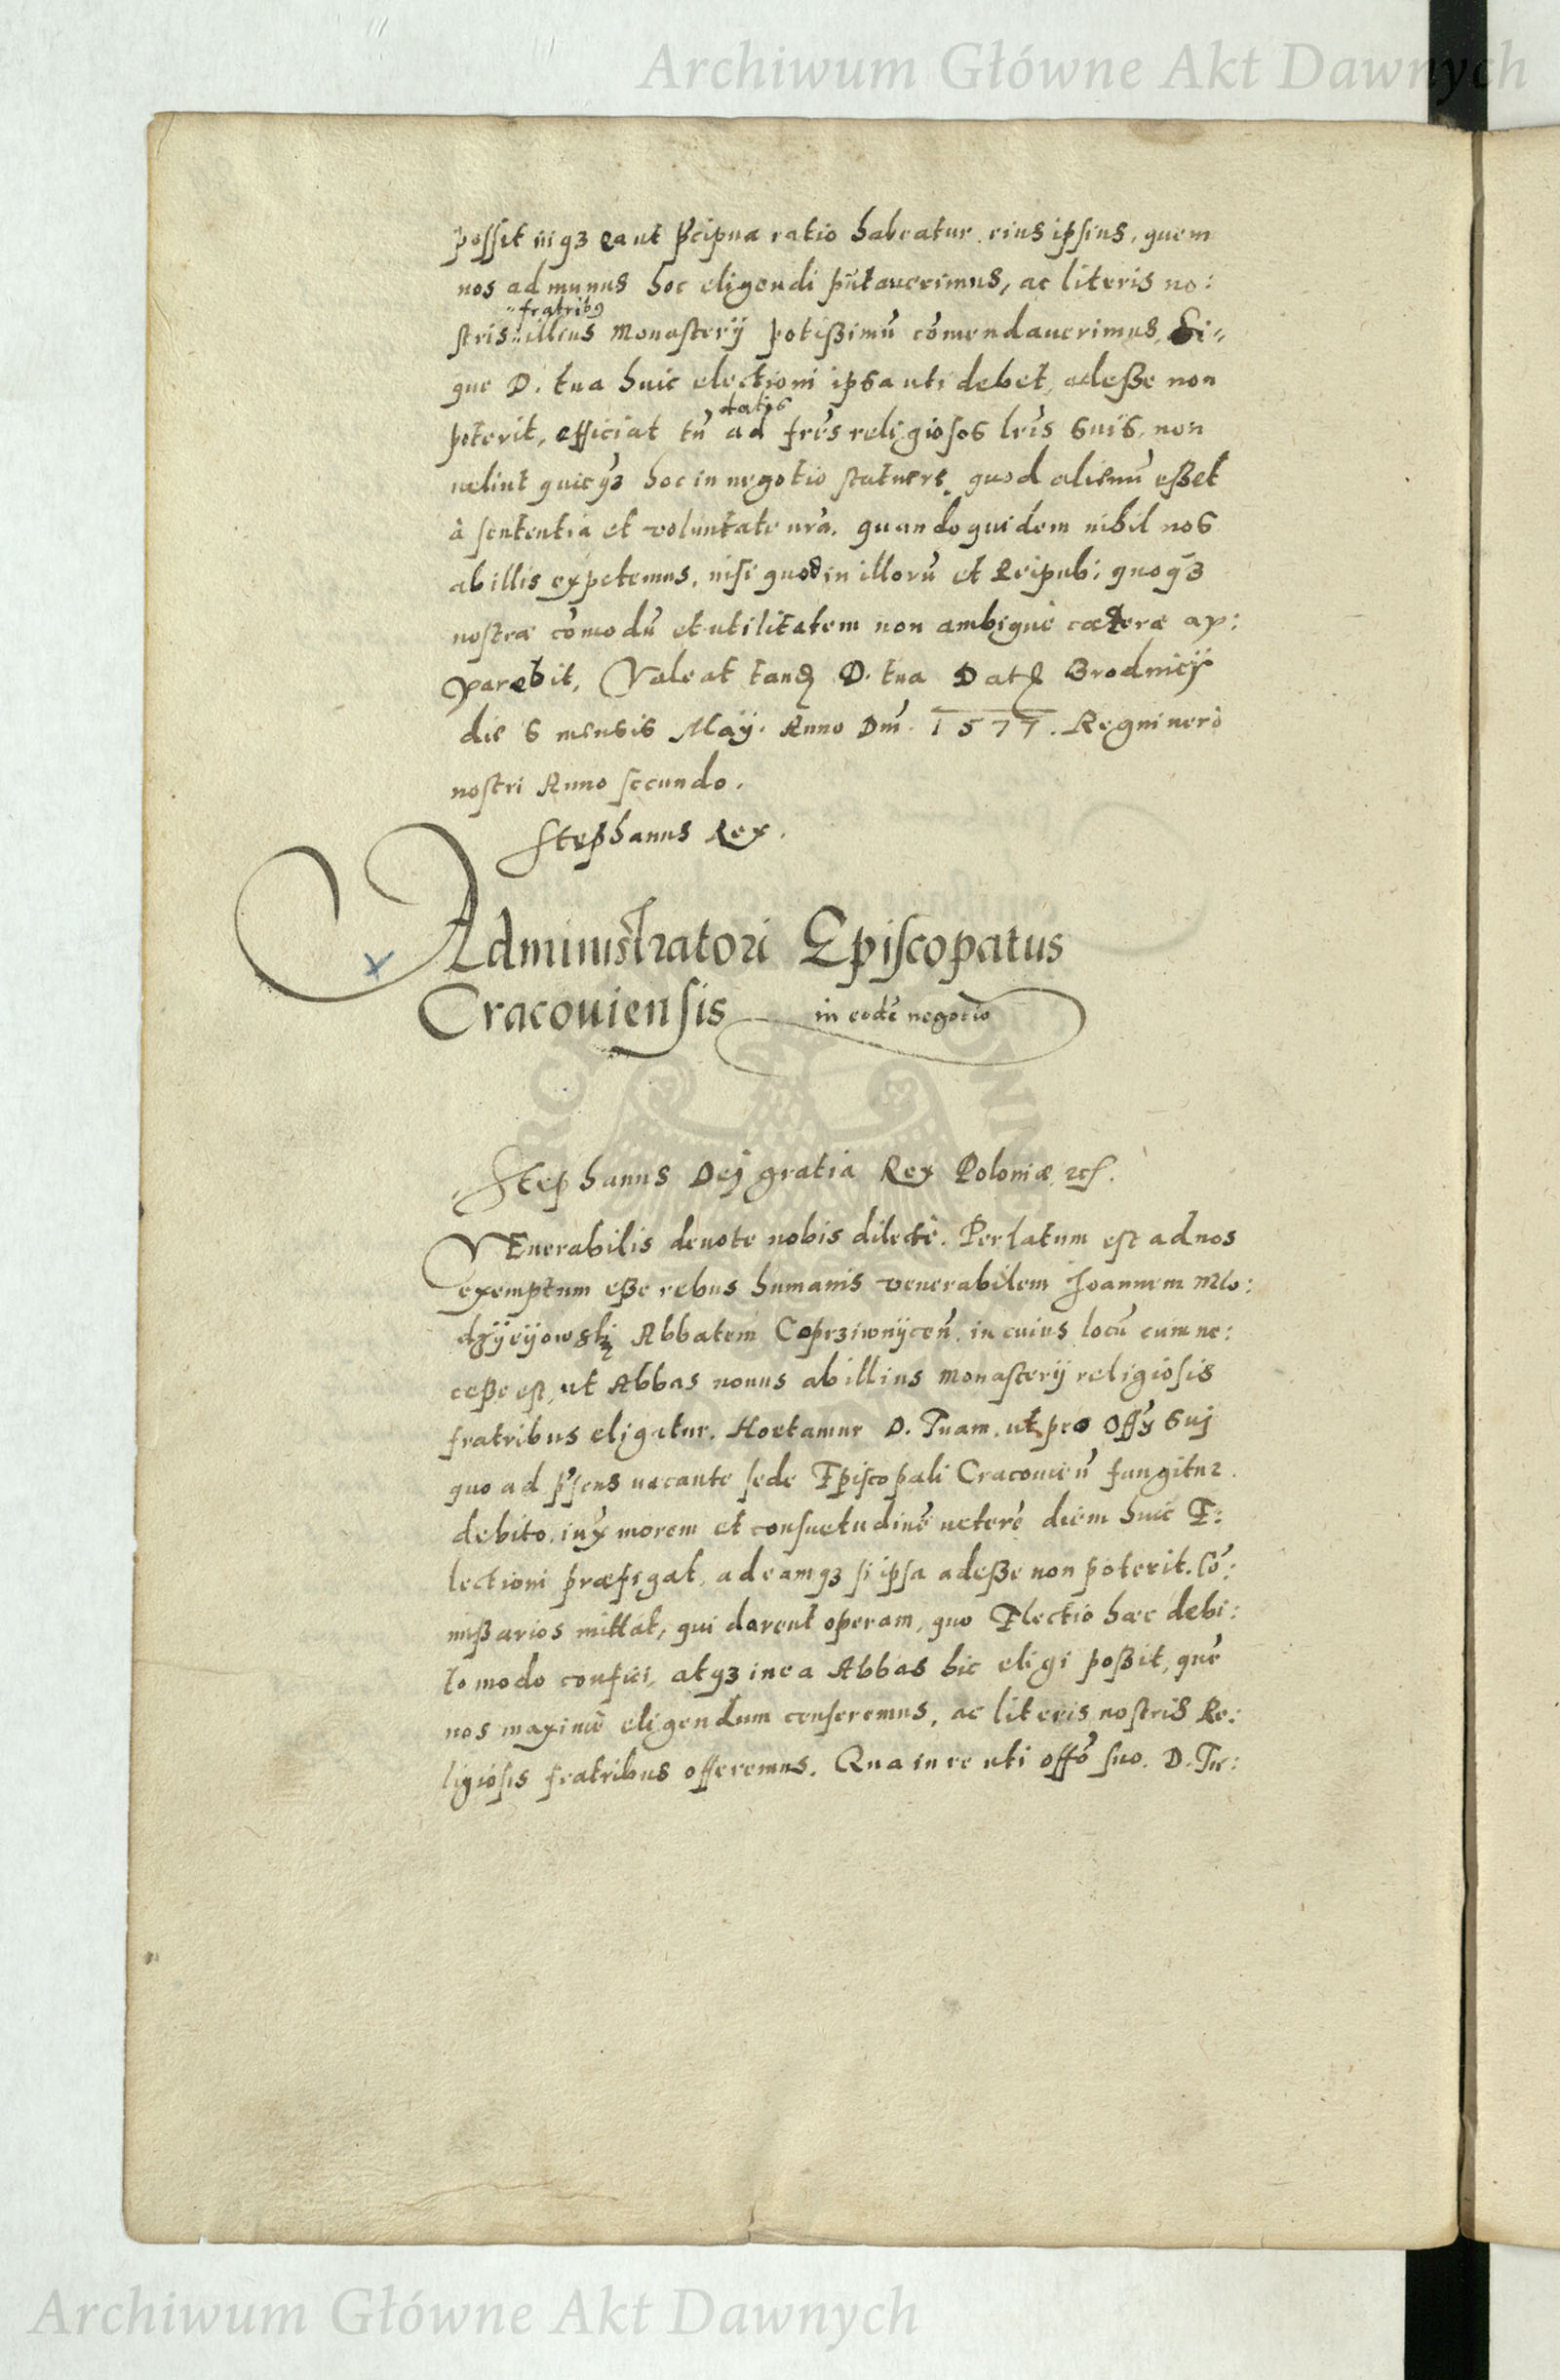 Archiwum Główne Akt Dawnych
possit in qȝ ea ut p̃cipua ratio habeatur eius ipsius, quem
nos ad munus hoc eligendi putaverimus, ac literis no:
fratribꝫ
stris illius Monasterij potißimũ cõmendauerimus, Si⸗
que D. tua huic electioni ipsa uti debet, adeße non
datis
poterit, efficiat tñ ad fres religiosos lris suis, non
uelint quicqȝ hoc in negotio statuere, quod alienũ eßet
à sententia et voluntate nrã. quandoquidem nihil nos
ab illis expetemus, nisi quod in illorũ et Reipub: quoqȝ
nostræ cõmodũ et utilitatem non ambiguè cæteræ ap:
parebit, Valeat tandẽ D. tua Datꝭ Brodnicij
die 6 mensis Maÿ. Anno Dnĩ. 1577. Regni verò
nostri Anno secundo.
Stephanus Rex.
Administratori Episcopatus
Cracouiensis in eodẽ negotio
Stephanus Dej gratia Rex Poloniæ, etc.
VEnerabilis deuote nobis dilectè. Perlatum est ad nos
exemptum eße rebus humanis venerabilem Joannem Mlo:
dzÿeÿowskj Abbatem Coprziwnÿceñ. in cuius locũ cum ne:
ceße est, ut Abbas nouus ab illius monasterij religiosis
fratribus eligatur. Hortamur D. Tuam. ut pro Offÿ Suj
quo ad p̃sens uacante sede Episcopali Cracouieñ fungitur.
debito, iux morem et consuetudinẽ ueterẽ diem huic E:
lectioni præfigat, ad eamqȝ si ipsa adeße non poterit. Cõ:
mißarios mittat, qui darent operam, quo Electio hæc debi:
to modo confici, atqȝ in ea Abbas hic eligi poßit, quẽ
nos maximè eligendum censeremus, ac literis nostris Re:
ligiosis fratribus offeremus. Qua in re uti offõ suo. D. Tu:
Archiwum Główne Akt Dawnych